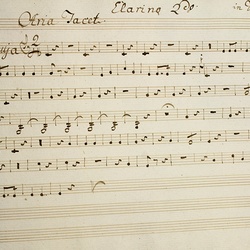 Clarino 2do. in
Aria Tacet.